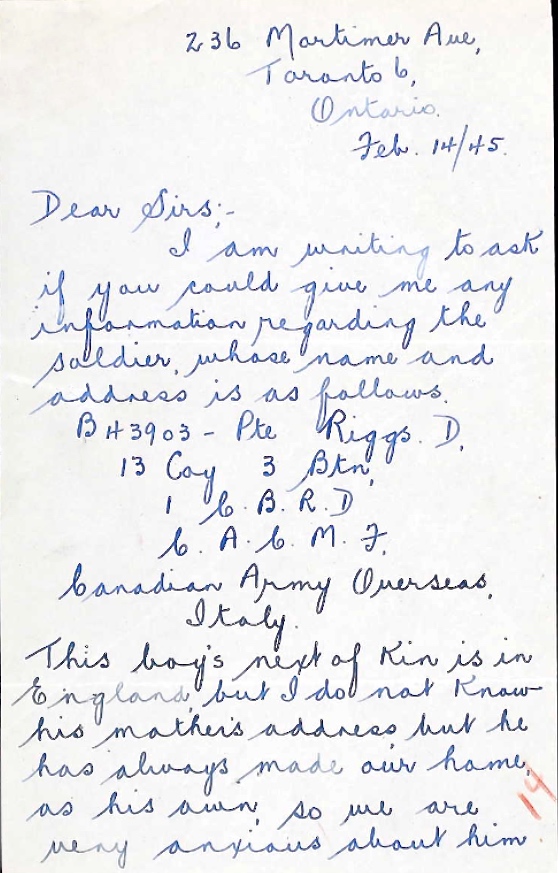 236 Mortimer Ave,
Toronto 6,
Ontario.
Feb. 14/45.
Dear Sirs;-
I am writing to ask
if you could give me any
information regarding the
soldier, whose name and
address is as follows.
B43903 - Pte Riggs. D,
13 Coy 3 Btn,
1 C. B. R. D
C. A. C. M. F,
Canadian Army Overseas,
Italy.
This boy's next of Kin is in
England, but I do not Know
his mother's address, but he
has always made our home,
as his own, so we are
very anxious about him
14